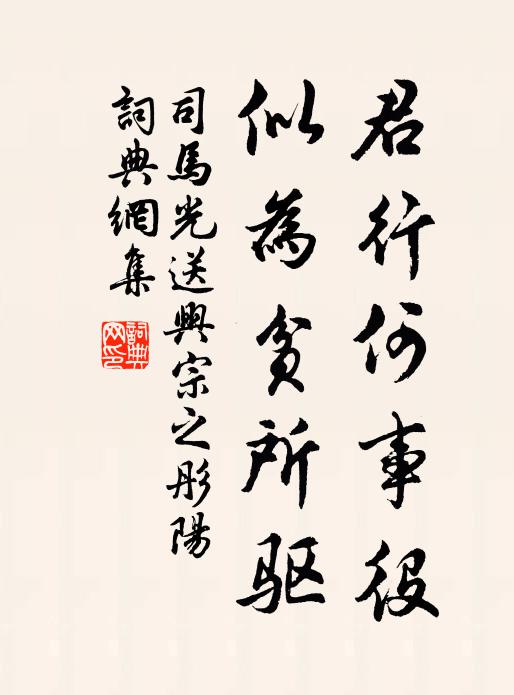 君行何事役
似為貧所驱
司馬光送興宗之彤陽
詞典網集
詞典网印